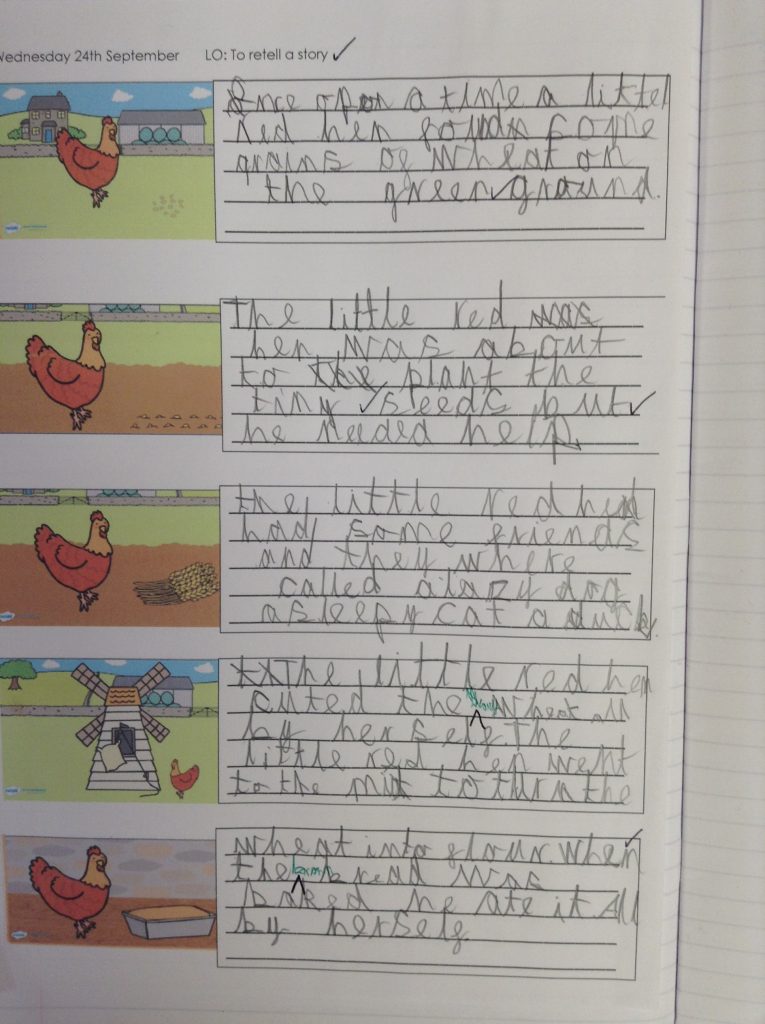 Wednesday 24th September LO: To retell a story
Once opon a time a littel
red hen found some
grains of wheat on
the green ground.
The little red was
hen was about
to the plant the
tiny seeds but
he needed help.
the little red hen
had some friends
and they where
called a lazy dog
a sleepy cat a duck.
The little red hen
cuted the wheat all
by herself. The
little red hen went
to the mill to turn the
wheat into flour. When
the bread was
baked he ate it all
by herself